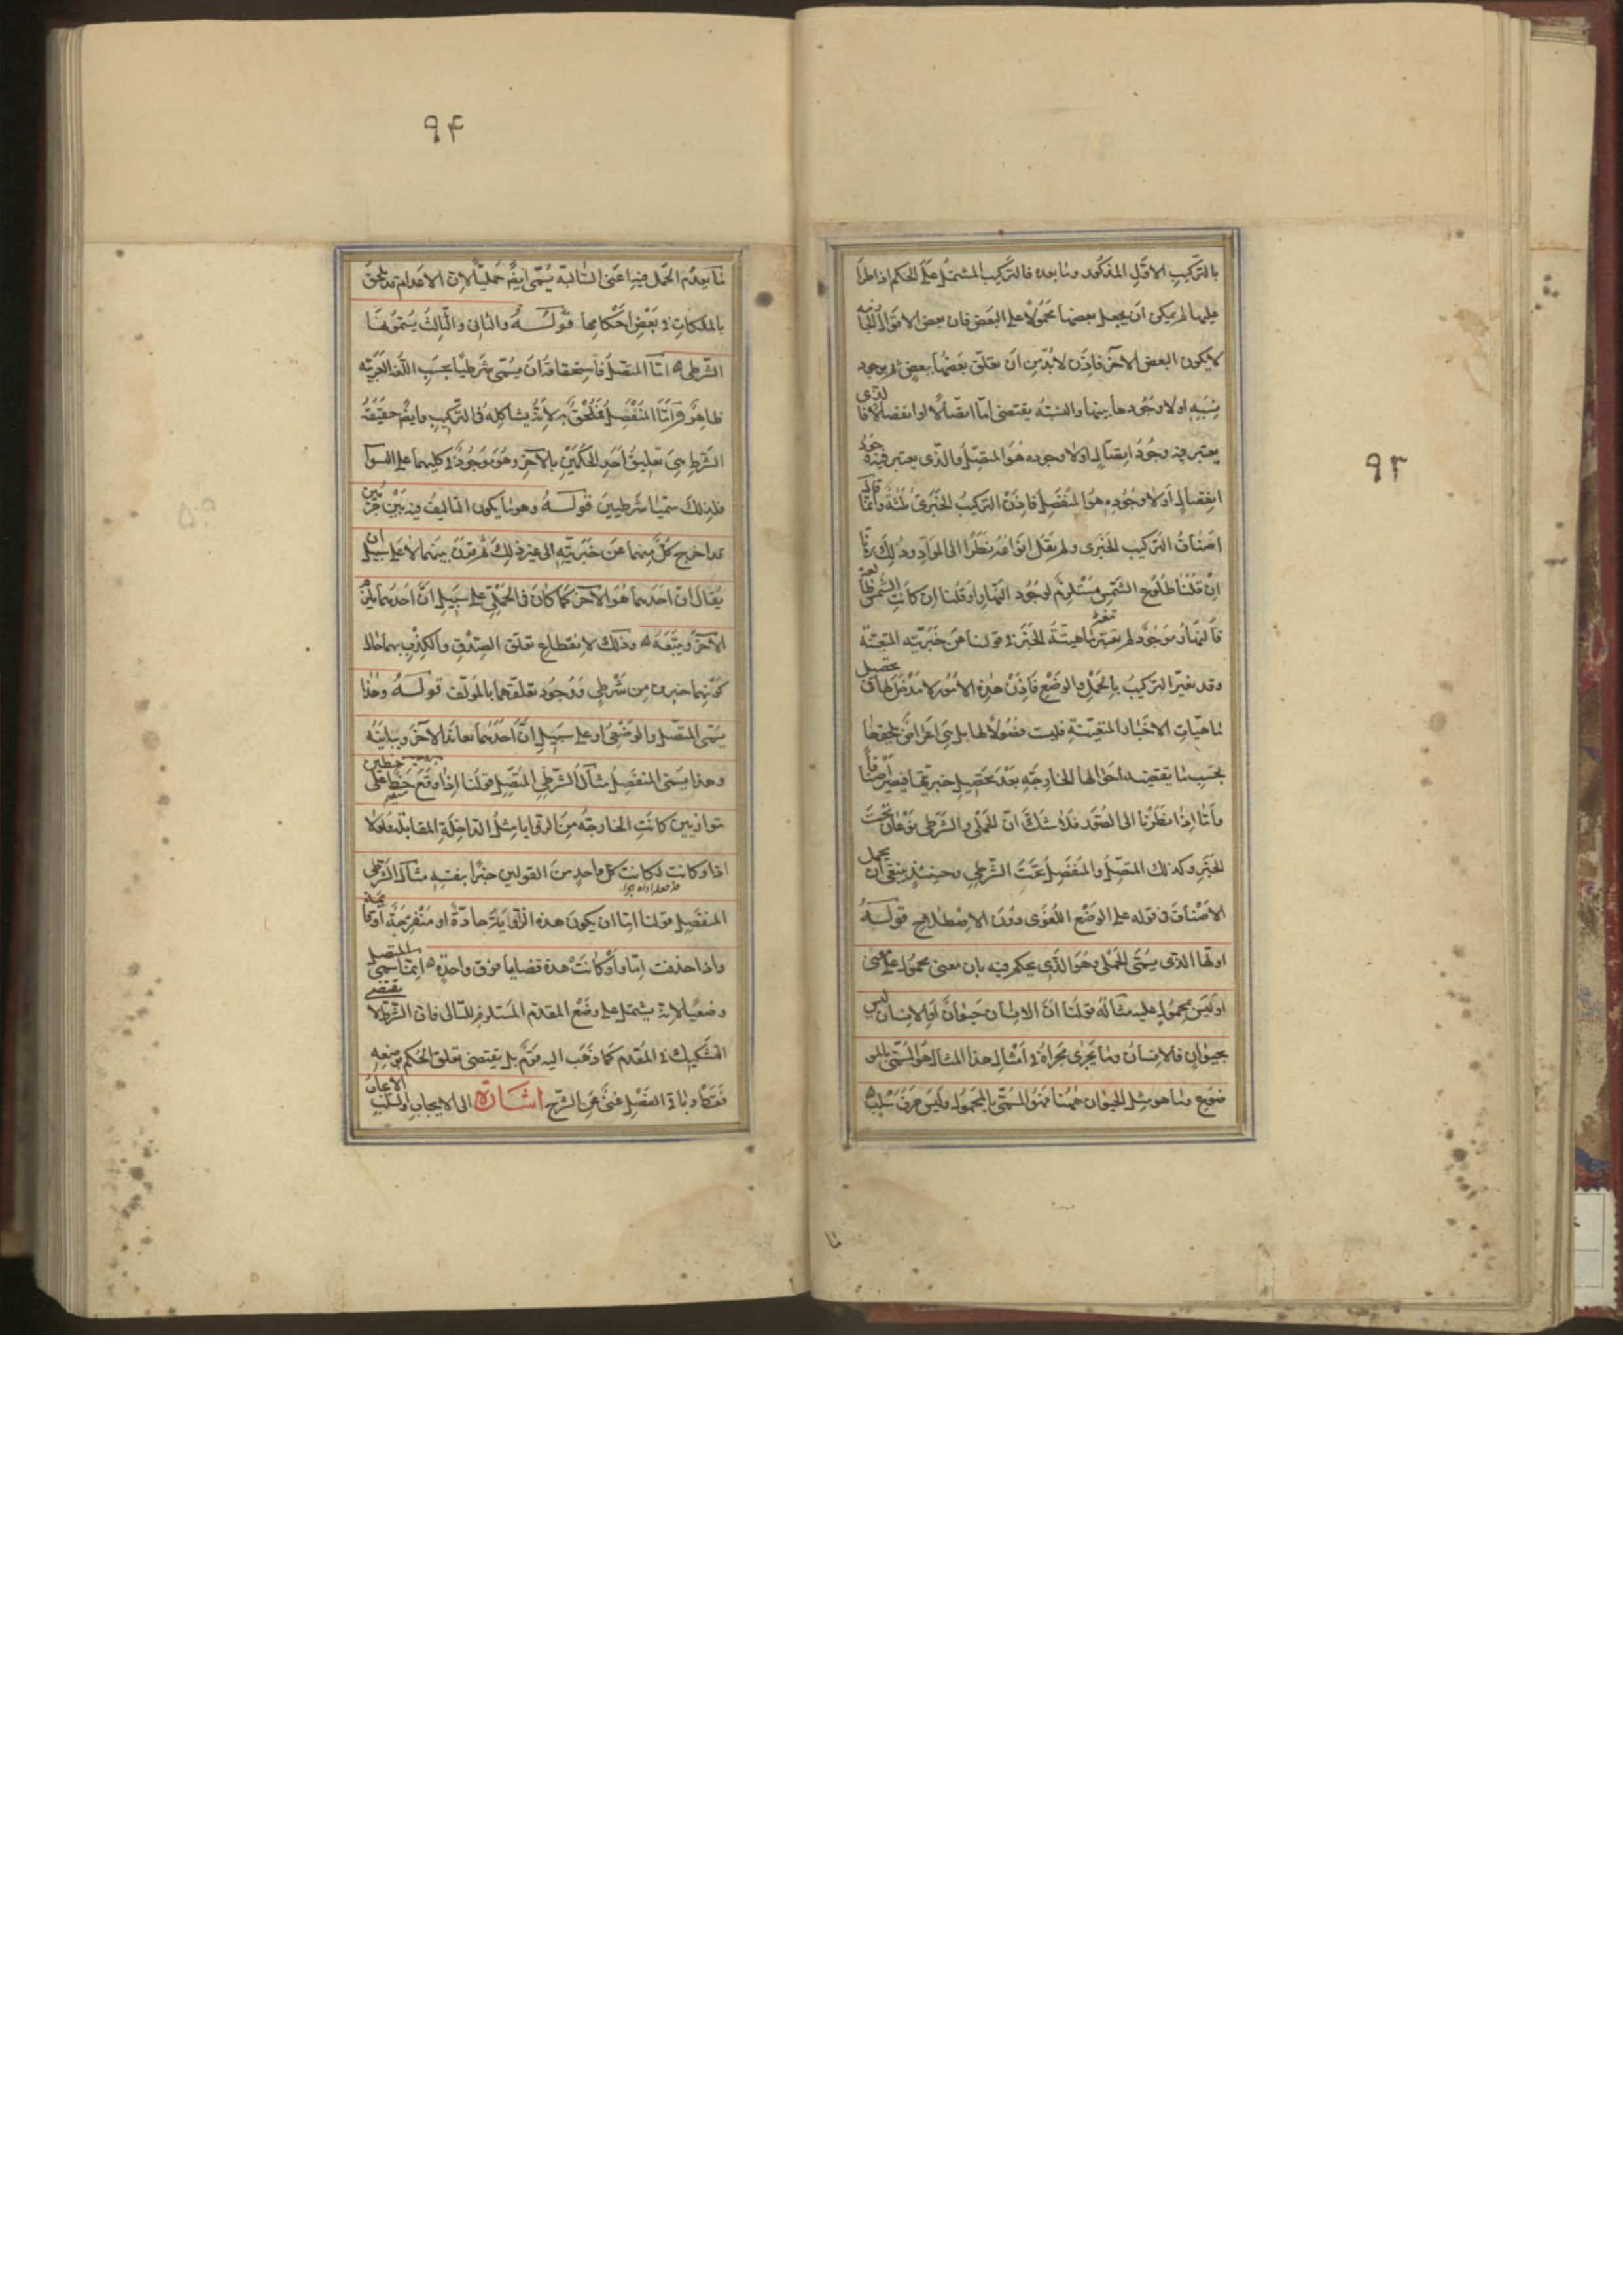 ۹۳
بالتركيب الاوّل المذكور وما بعده فالتركيب المشتمل على الحكم اذا طرأ
عليها لم يمكن ان يجعل بعضها محمولا على البعض فان بعض الاقوال الجازمة
لا يكون البعض الآخر فاذن لا بد من ان يتعلق بعضها ببعض ثم بوجود
نسبة او لا وجودها بينها والنسبة يقتضى امّا اتصالا او انفصالا فالذى
يعتبر فيه وجود اتصال او لا وجوده هو المتصل والذى يعتبر فيه وجود
انفصال او لا وجوده هو المنفصل فاذن التركيب الخبرى ثلثة وانما قال
اصناف التركيب الخبرى ولم يقل انواعه نظرا الى المواد وذلك
ان قلنا طلوع الشمس مستلزم لوجود النهار او قلنا ان كانت الشمس طالعة
فالنهار موجود لم تتغير ماهيّة الخبر فى قولنا عن خبريّته المتعينة
وقد تغير التركيب بالحمل والوضع فاذن هذه الامور لا مدخل لها فى تحصيل
ماهيّات الاخبار المتعينة فليست فصولا لها بل هى اعراض تلحقها
بحسب ما يقتضيه احوالها الخارجة بعد تحصيل خبريتها فيصير اصنافا
وامّا اذا نظرنا الى الصور فلا شك ان الحملى والشرطى نوعان تحت
الخبر وكذلك المتصل والمنفصل تحت الشرطى وحينئذ ينبغى ان يحمل
الاصناف فى قوله على الوضع اللغوى دون الاصطلاحى قوله
اولها الذى يسمّى الحملى وهو الذى يحكم فيه بان معنى محمول على معنى
او ليس بمحمول عليه مثاله قولنا ان الانسان حيوان او الانسان ليس
بحيوان فالانسان وما يجرى مجراه فى امثال هذا المثال هو المسمّى بالمو
ضوع وما هو مثل الحيوان ههنا فهو المسمّى بالمحمول وليس حرف سلب
ما
۹۴
ما يعدم الحمل فيها اعنى السالبة يسمّى ايضا حمليا لان الاعدام قد تلحق
بالملكات فى بعض احكامها قوله والثانى والثالث يسمونهما
الشرطى امّا المتصل فاستحقاقه ان يسمّى شرطيا بحسب اللغة العربية
ظاهر وامّا المنفصل فملحق به لانّه يشاكله فى التركيب وايضا حقيقة
الشرط هى تعليق احد الحكمين بالآخر وهو موجود فى كليهما على السوآ
فلذلك سمّيا شرطيين قوله وهو ما يكون التاليف فيه بين خبرين
قد اخرج كل منهما عن خبريّته الى غير ذلك ثم قرن بينهما لا على سبيل ان
يقال ان احدهما هو الآخر كما كان فى الحملى بل على سبيل ان احدهما يلزم
الآخر ويتبعه وذلك لانقطاع تعلق الصدق والكذب بهما حال
كونهما جزئى من شرطى ووجود تعلقهما بالمؤلف قوله وهذا
يسمّى المتصل والوضعى او على سبيل ان احدهما يعاند الآخر ويباينه
وهذا يسمى المنفصل مثال الشرطى المتصل قولنا اذا وقع خط على خطين
متوازيين كانت الخارجة من الزوايا مثل الداخلة المقابلة ولولا
اذا وكانت لكانت كل واحد من القولين خبرا بنفسه مثال الشرطى
المنفصل قولنا امّا ان يكون هذه الزاوية حادّة او منفرجة او قائمة
واذا حذفت امّا واو كانت هذه قضايا فوق واحدة انما سمى المتصل
وضعيا لانه يشتمل على وضع المقدم المستلزم للتالى فان الشرط لا يقتضى
التشكيك فى المقدم كما ذهب اليه قوم بل يقتضى تعلق الحكم بوضعه
فقط وباقى الفصل غنىّ عن الشرح اشارة الى الايجاب والسلب